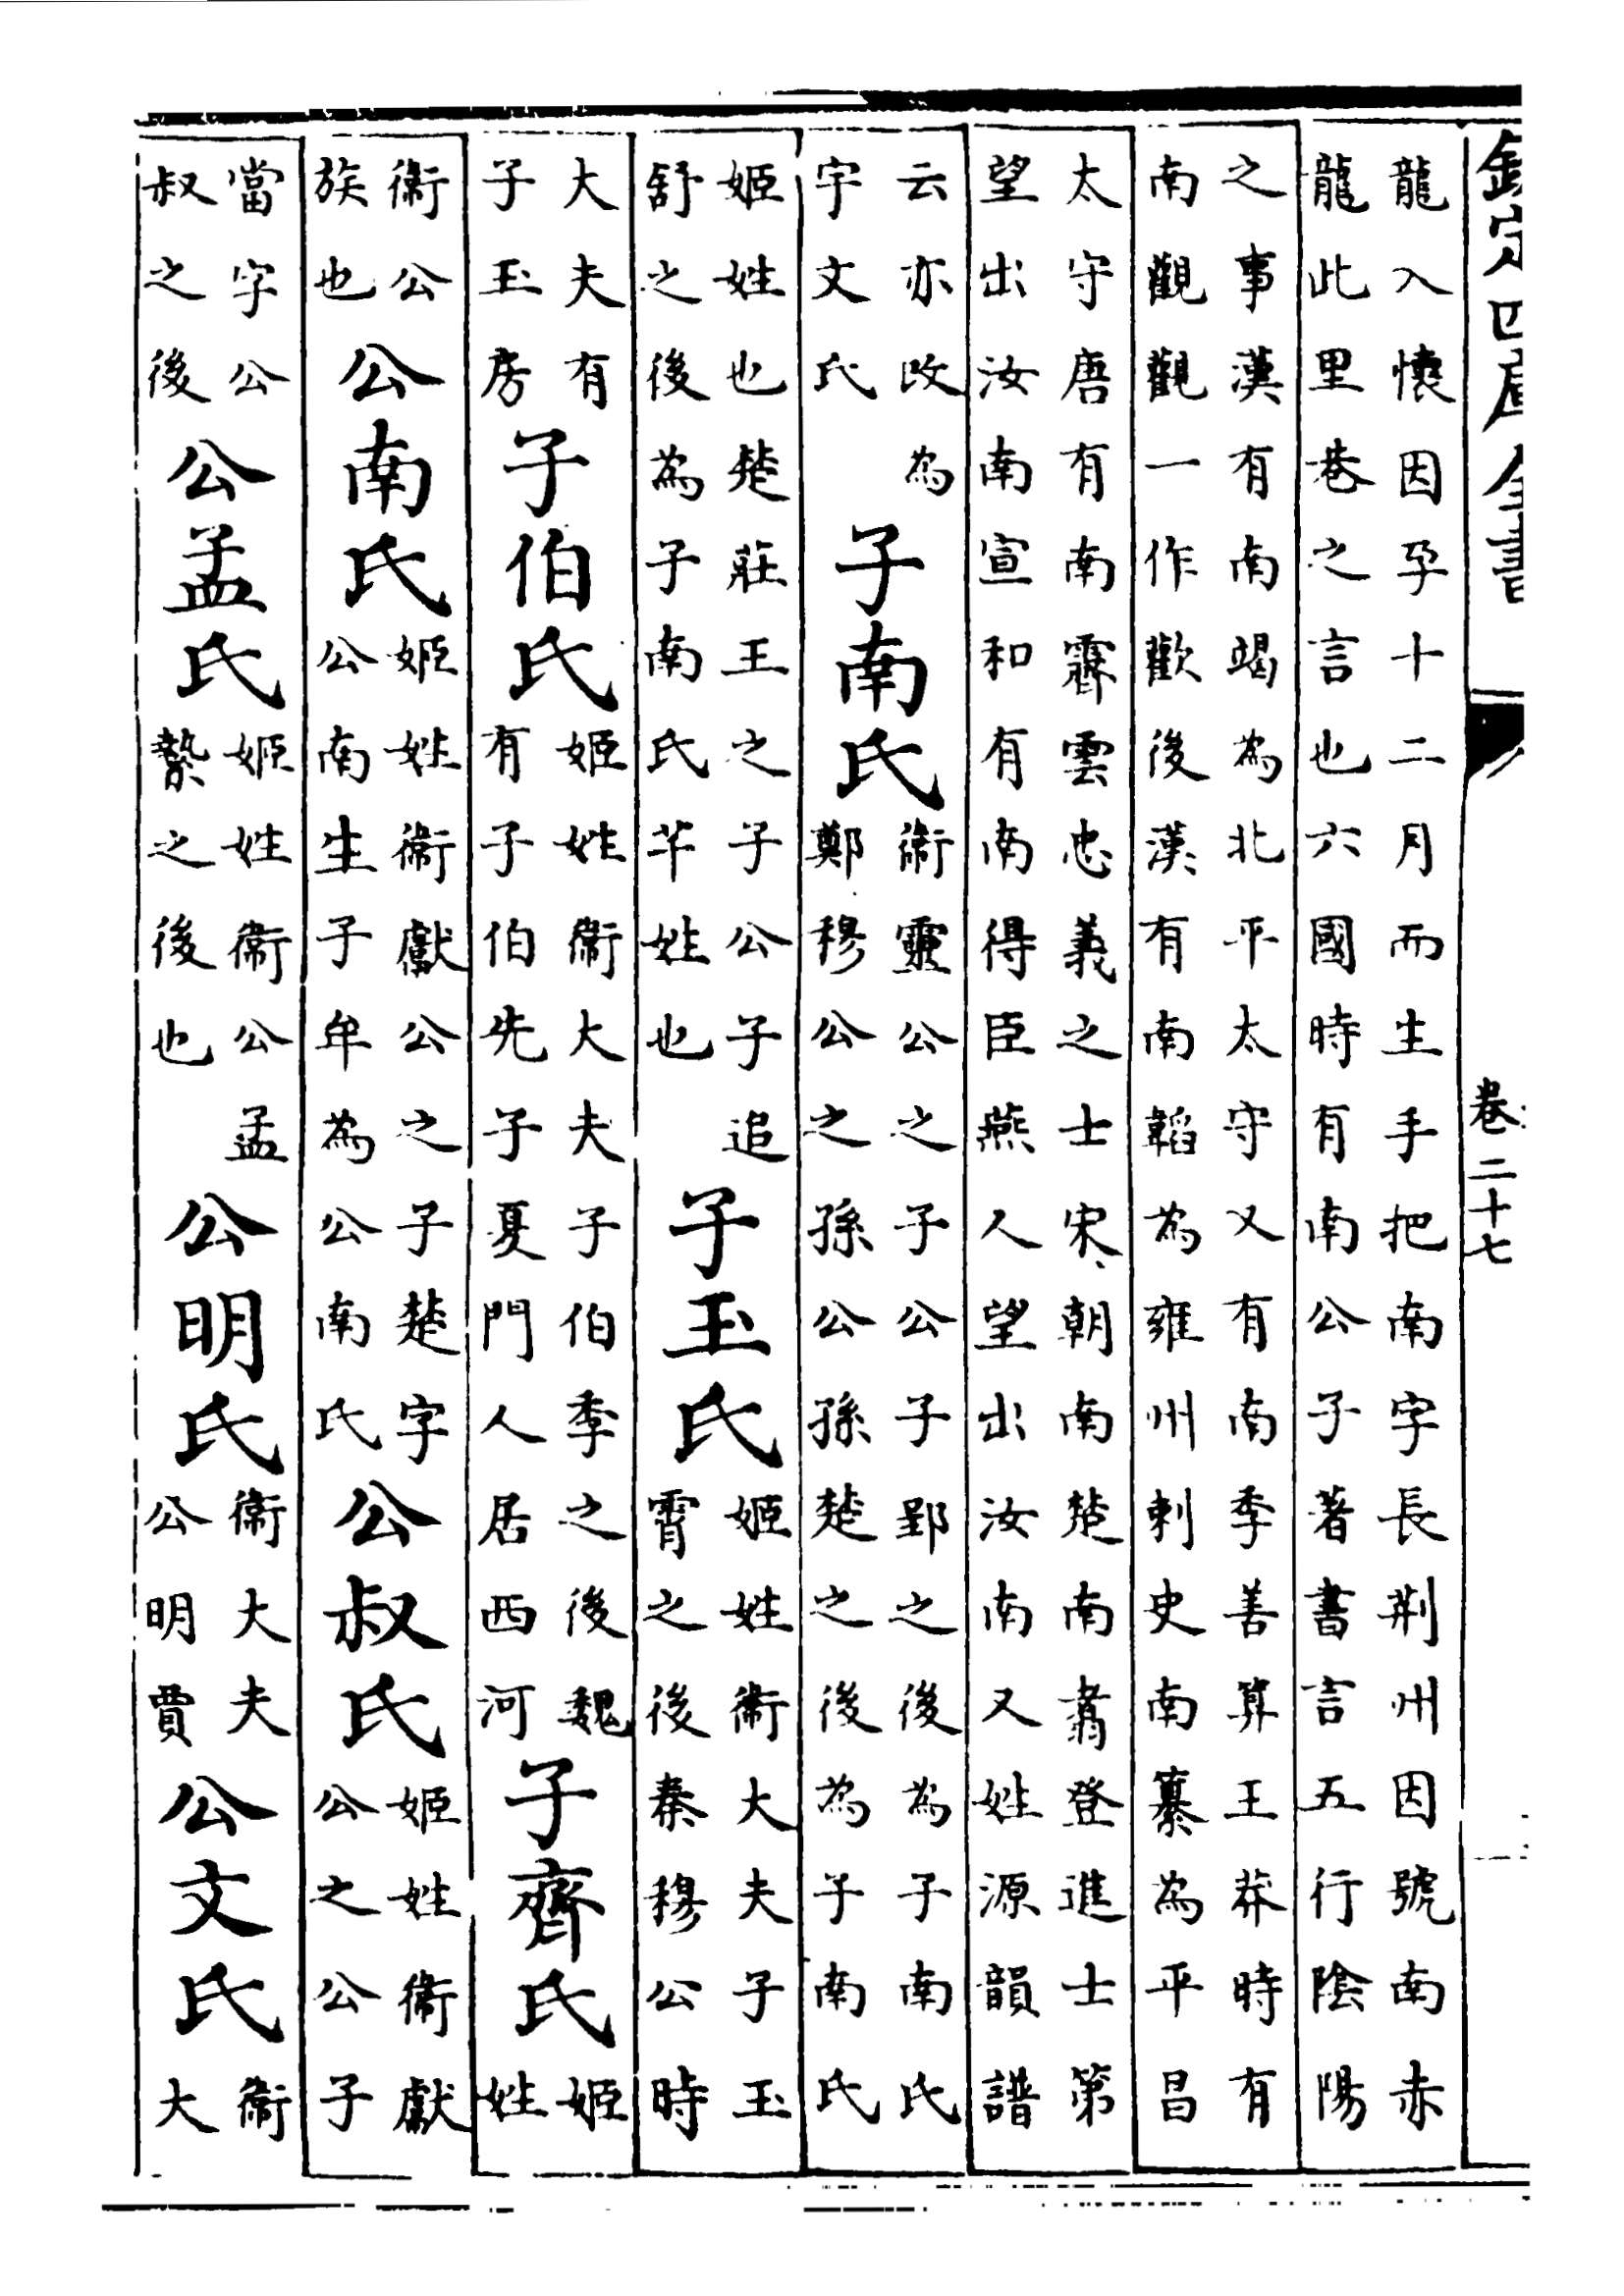 欽定四庫全書
卷二十七
龍入懷因孕十二月而生手把南字長荆州因號南赤
龍此里巷之言也六國時有南公子著書言五行陰陽
之事漢有南竭為北平太守又有南季善算王莽時有
南觀觀一作歡後漢有南韜為雍州刺史南纂為平昌
太守唐有南霽雲忠義之士宋朝南楚南翥登進士第
望出汝南宣和有南得臣燕人望出汝南又姓源韻譜
云亦改為
宇文氏
子南氏
衞靈公之子公子郢之後為子南氏
鄭穆公之孫公孫楚之後為子南氏
姬姓也楚莊王之子公子追
舒之後為子南氏芊姓也
子玉氏
姬姓衞大夫子玉
霄之後秦穆公時
大夫有
子玉房
子伯氏
姬姓衞大夫子伯季之後魏
有子伯先子夏門人居西河
子齊氏
姬
姓
衞公
族也
公南氏
姬姓衞獻公之子楚字
公南生子牟為公南氏
公叔氏
姬姓衞獻
公之公子
當字公
叔之後
公孟氏
姬姓衞公孟
縶之後也
公明氏
衞大夫
公明賈
公文氏
衞
大